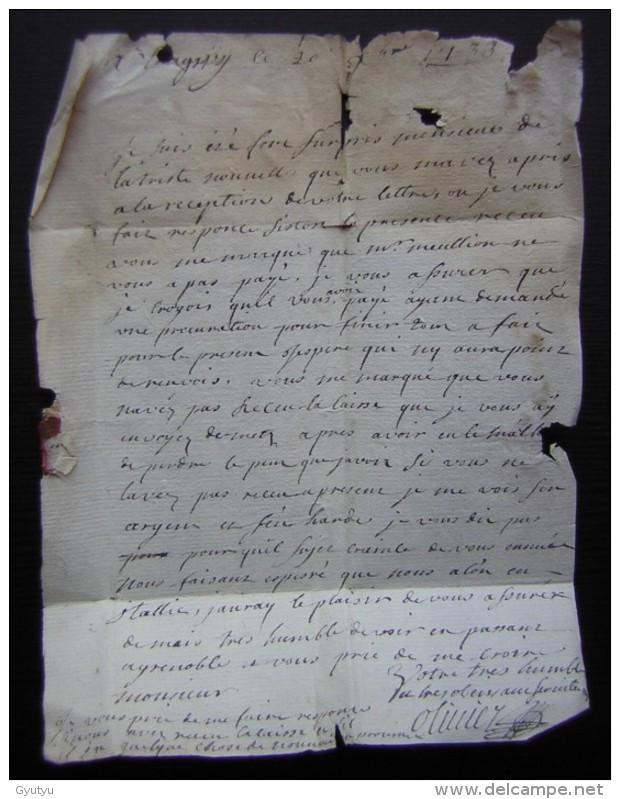 le 20 1733
je suis été fort surpris monsieur de
la triste nouvelle que vous mavez apris
a la reception de votre lettre, ou je vous
fait responce sistost la presente receu
vous me marque que mr. meullion ne
vous a pas payé, je vous assurer que
je croyois quil vous avoit payé ayant demandé
une procuration pour finir tout a fait
pour le present jespere qui ny aura point
de renvois, vous me marqué que vous
navez pas receu la laisse que je vous ay
envoyez de metz apres avoir eu le malh
de perdre le peu que javois si vous ne
lavez pas receu apresent je me vois sen
argent et sen harde je vous dit pas
pour quil sujet crainte de vous ennuié
nous faisant esperé que nous alon en
itallie, jauray le plaisir de vous assurér
de mais tres humble devoir en passant
a grenoble et vous prie de me croire
monsieur
Votre tres humble
et tres obeissant
olivier
Je vous prie de me faire responce
si vous avez receu la laisse et sil
quelque chose de nouveau en province
Gyutyu
www.delcampe.net